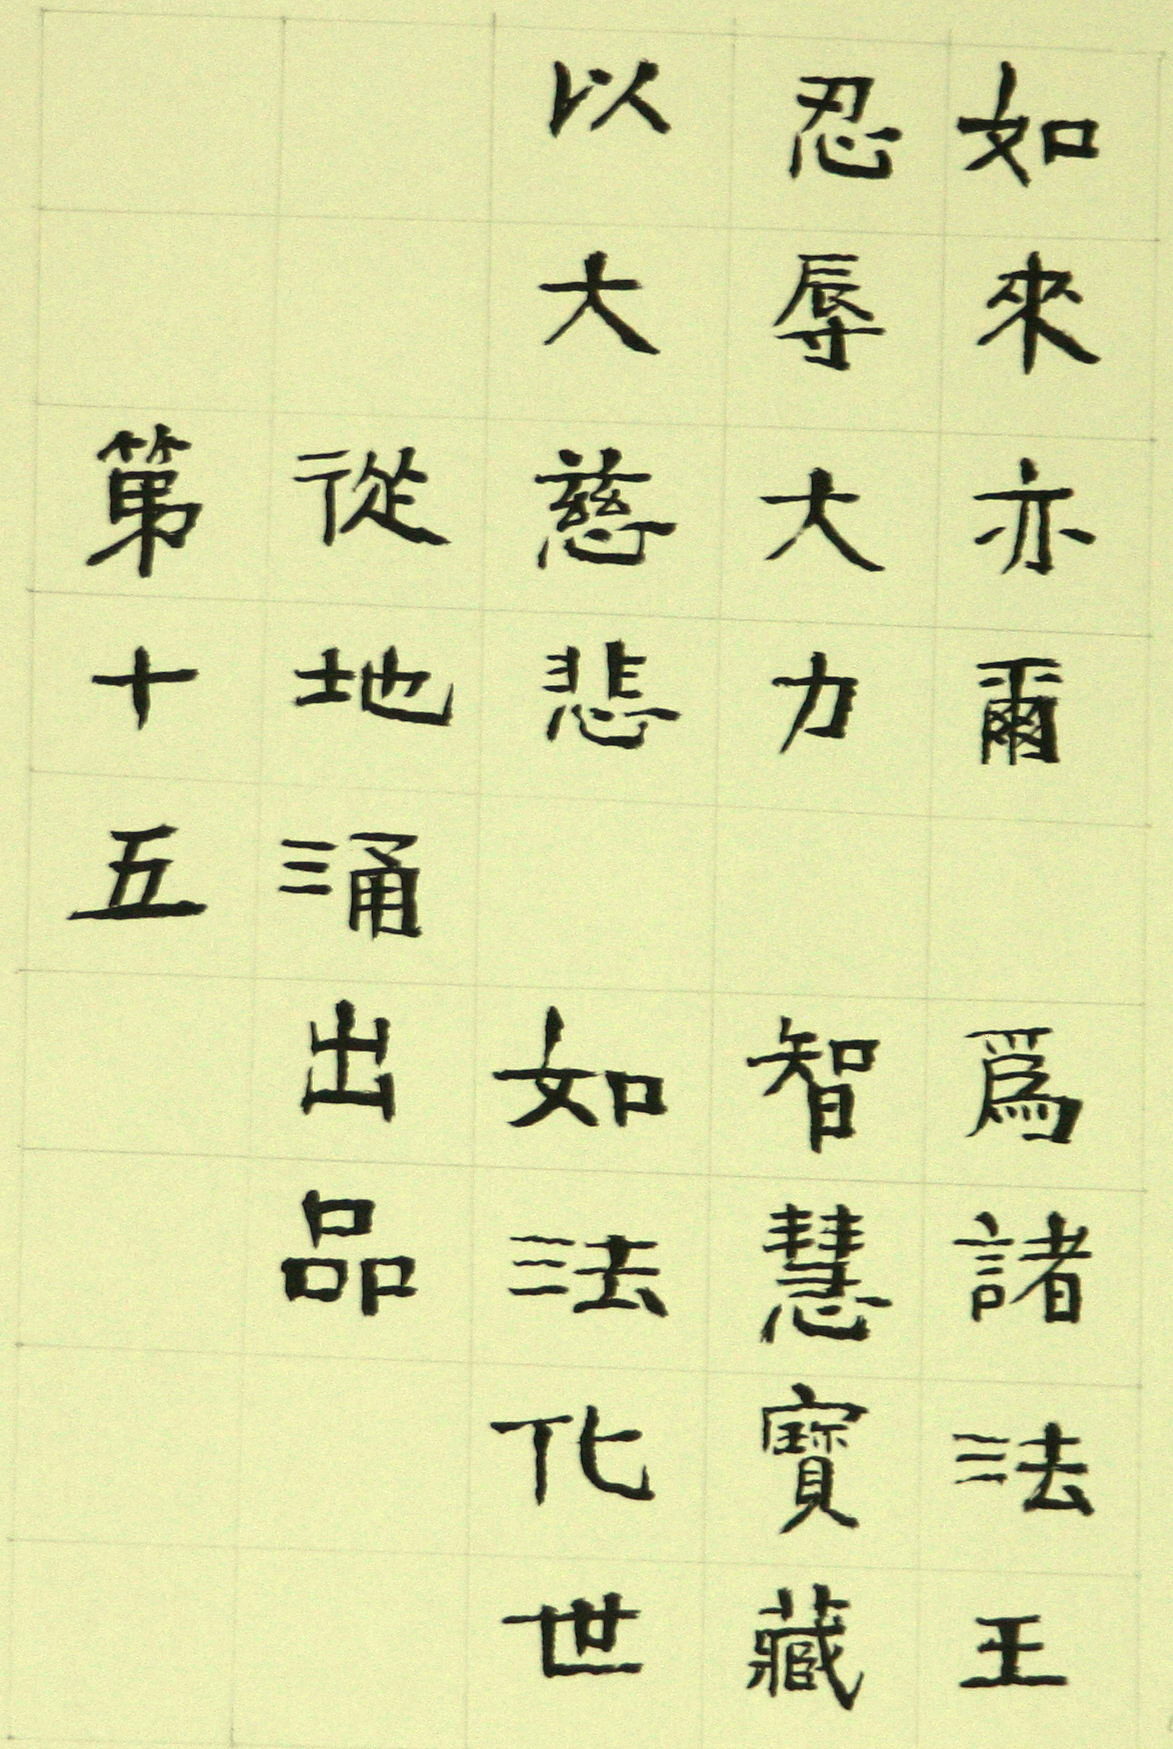 如來亦爾 爲諸法王
忍辱大力 智慧寶藏
以大慈悲 如法化世
從地涌出品
第十五